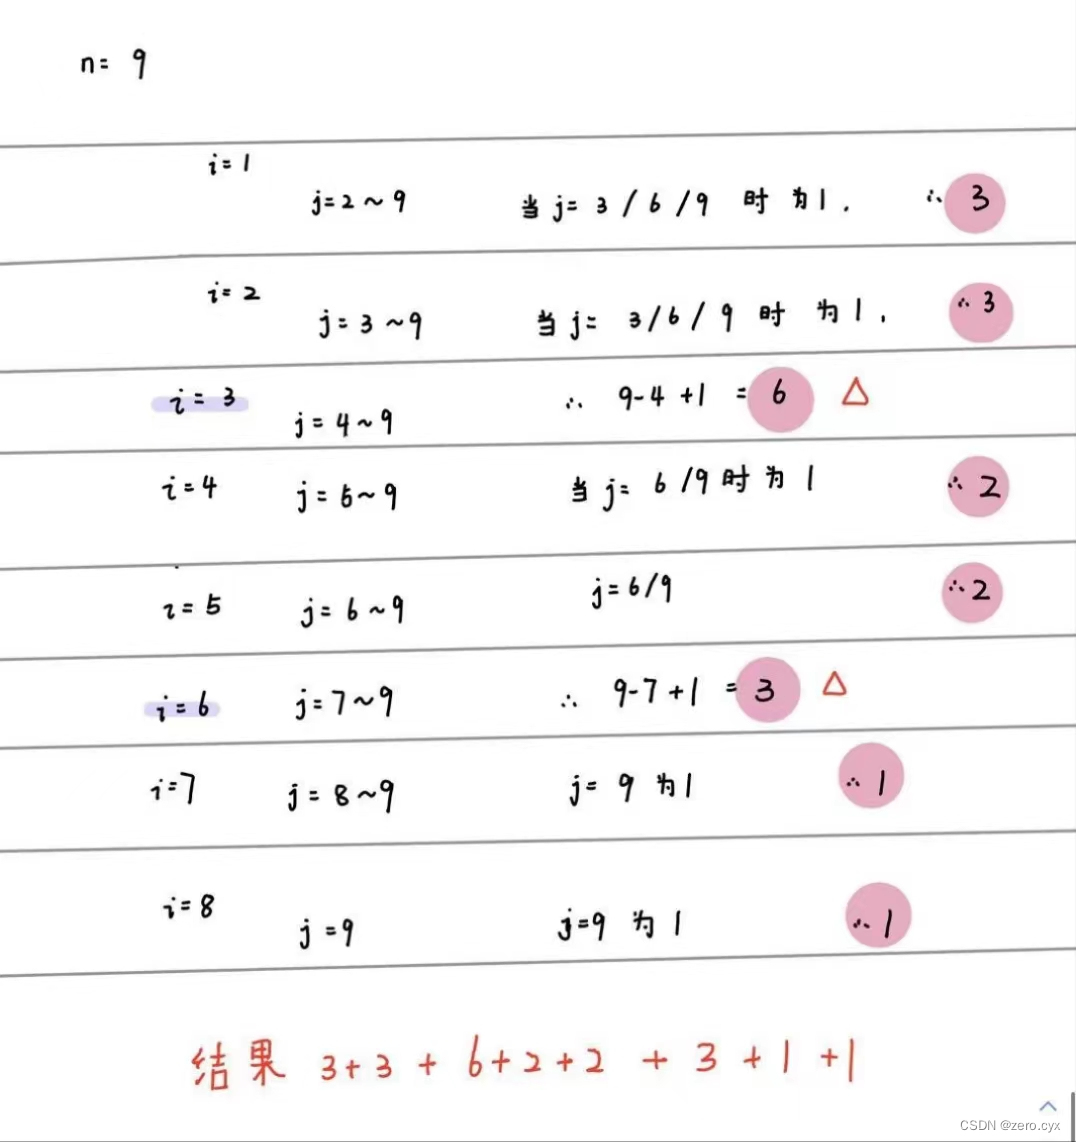 n= 9
i=1
j=2~9 当 j= 3/6/9 时 为1. ∴ 3
i=2
j=3~9 当 j= 3/6/9 时 为1. ∴ 3
i=3 j=4~9 ∴ 9-4+1 = 6 △
i=4 j=5~9 当 j= 6/9 时 为 1 ∴ 2
i=5 j=6~9 j=6/9 ∴ 2
i=6 j=7~9 ∴ 9-7+1 = 3 △
i=7 j=8~9 j=9 为1 ∴ 1
i=8
j=9 j=9 为 1 ∴ 1
结果 3+3+6+2+2+3+1+1
CSDN @zero.cyx